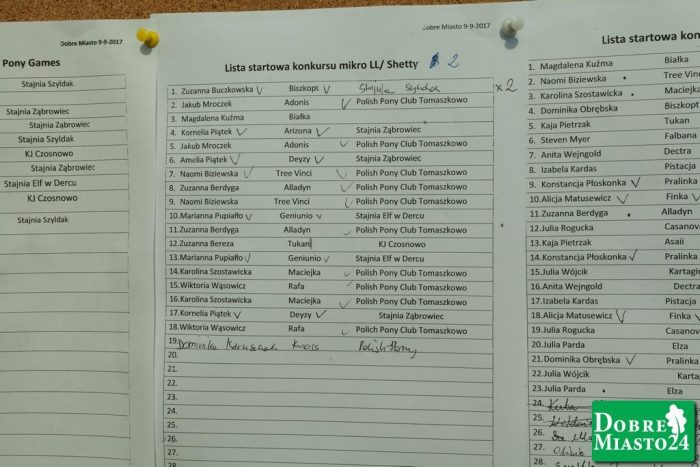 Dobre Miasto 9-9-2017
Pony Games
Stajnia Szyldak
Stajnia Ząbrowiec
Stajnia Ząbrowiec
Stajnia Szyldak
KJ Czosnowo
Stajnia Ząbrowiec
Stajnia Elf w Dercu
KJ Czosnowo
Stajnia Szyldak
Dobre Miasto 9-9-2017
Lista startowa konkursu mikro LL/ Shetty 2
1. Zuzanna Buczkowska Biszkopt Stajnia Szyldak x2
2. Jakub Mroczek Adonis Polish Pony Club Tomaszkowo
3. Magdalena Kuźma Białka
4. Kornelia Piątek Arizona Stajnia Ząbrowiec
5. Jakub Mroczek Adonis Polish Pony Club Tomaszkowo
6. Amelia Piątek Deyzy Stajnia Ząbrowiec
7. Naomi Biziewska Tree Vinci Polish Pony Club Tomaszkowo
8. Zuzanna Berdyga Alladyn Polish Pony Club Tomaszkowo
9. Naomi Biziewska Tree Vinci Polish Pony Club Tomaszkowo
10. Marianna Pupiałło Geniunio Stajnia Elf w Dercu
11. Zuzanna Berdyga Alladyn Polish Pony Club Tomaszkowo
12. Zuzanna Bereza Tukan KJ Czosnowo
13. Marianna Pupiałło Geniunio Stajnia Elf w Dercu
14. Karolina Szostawicka Maciejka Polish Pony Club Tomaszkowo
15. Wiktoria Wąsowicz Rafa Polish Pony Club Tomaszkowo
16. Karolina Szostawicka Maciejka Polish Pony Club Tomaszkowo
17. Kornelia Piątek Deyzy Stajnia Ząbrowiec
18. Wiktoria Wąsowicz Rafa Polich Pony Club Tomaszkowo
19. Dominika
20.
21.
22.
23.
24.
25.
26.
27.
28.
Lista startowa kon
1. Magdalena Kuźma Białka
2. Naomi Biziewska Tree Vinc
3. Karolina Szostawicka Maciejka
4. Dominika Obrębska Biszkopt
5. Kaja Pietrzak Tukan
6. Steven Myer Falbana
7. Anita Wejngold Dectra
8. Izabela Kardas Pistacja
9. Konstancja Płoskonka Pralinka
10. Alicja Matusewicz Finka
11. Zuzanna Berdyga Alladyn
12. Julia Rogucka Casanov
13. Kaja Pietrzak Asaii
14. Konstancja Płoskonka Pralinka
15. Julia Wójcik Kartagin
16. Anita Wejngold Dectra
17. Izabela Kardas Pistacja
18. Alicja Matusewicz Finka
19. Julia Rogucka Casanov
20. Julia Parda Elza
21. Dominika Obrębska Pralinka
22. Julia Wójcik Kartag
23. Julia Parda Elza
24. Kuba
25.
26.
27.
28.
DOBRE
MIASTO24